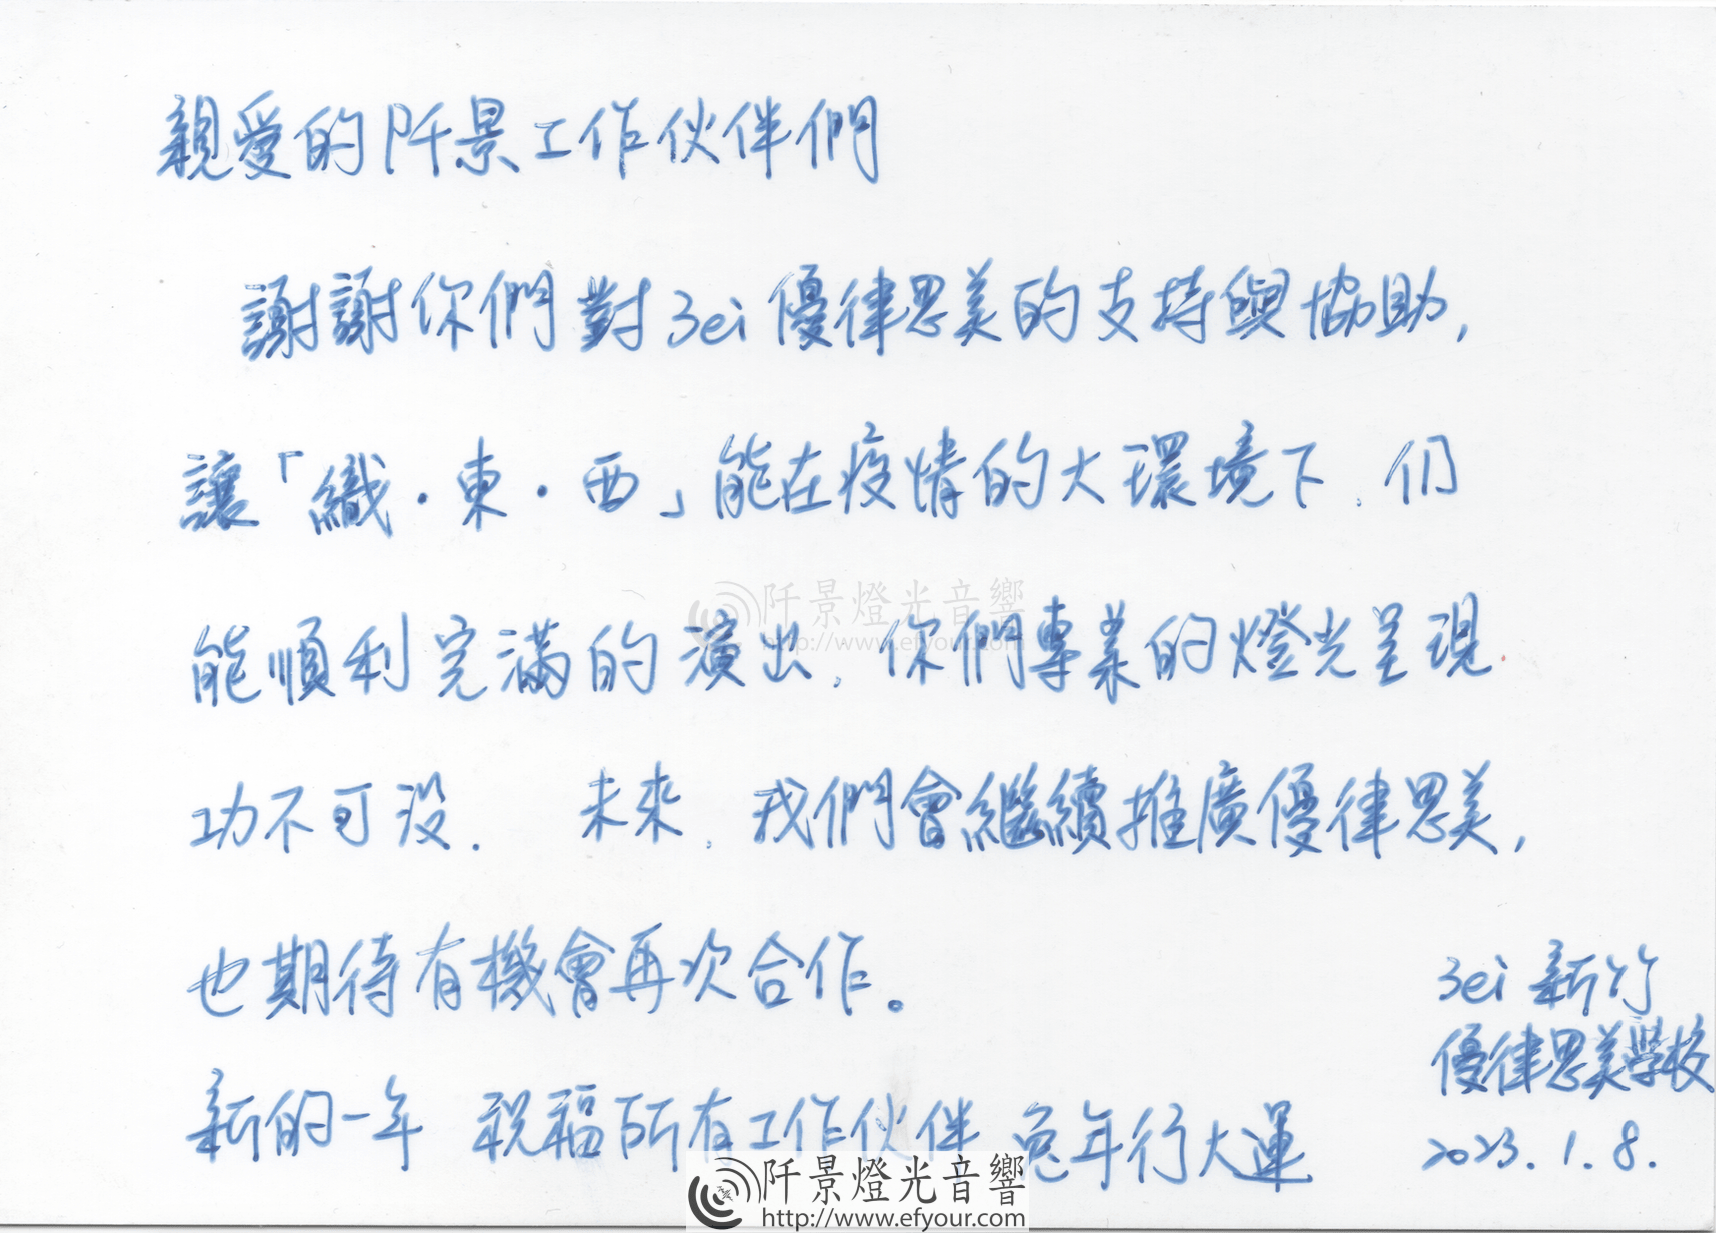 親愛的阡景工作伙伴們
謝謝你們對3ei優律思美的支持與協助,
讓「織·東·西」能在疫情的大環境下、们
能順利完滿的演出、你們專業的燈光呈現
阡景燈光音響
http://www.efyour.com
功不可没. 未來、我們會繼續推廣優律思美,
也期待有機會再次合作。
新的一年 祝福所有工作伙伴 兔年行大運
3ei 新竹
優律思美學校
2023.1.8.
阡景燈光音響
http://www.efyour.com